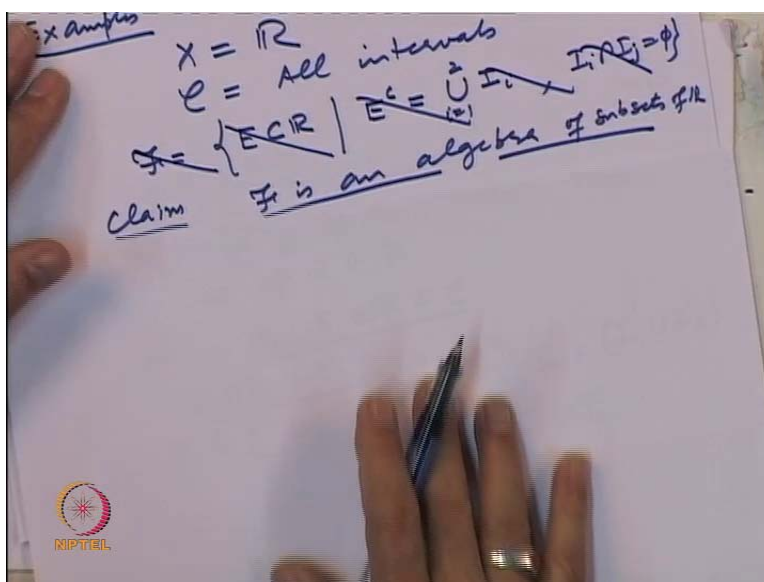 Examples
X = ℝ
𝒞 = All intervals
ℱ = { E ⊂ ℝ | E^c = ⋃_{i=1}^{2} I_i , I_i ∩ I_j = ϕ }
Claim ℱ is an algebra of subsets of ℝ
NPTEL